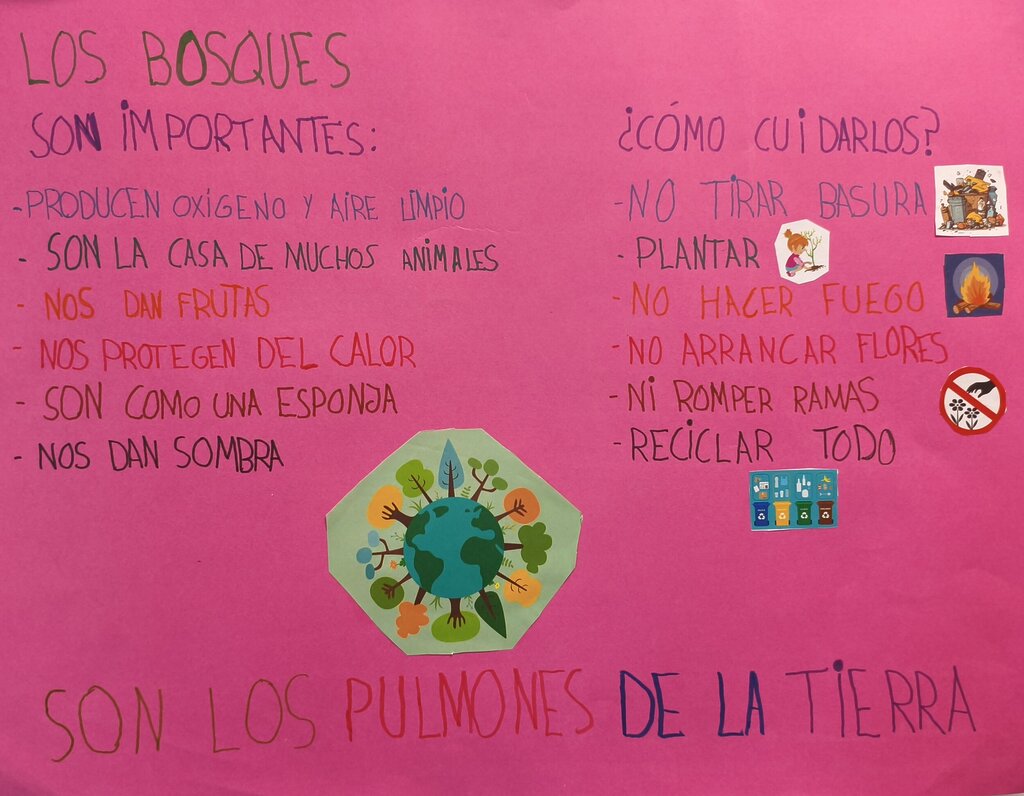 LOS BOSQUES
SON IMPORTANTES:
-PRODUCEN OXÍGENO Y AIRE LIMPIO
- SON LA CASA DE MUCHOS ANIMALES
- NOS DAN FRUTAS
- NOS PROTEGEN DEL CALOR
- SON COMO UNA ESPONJA
- NOS DAN SOMBRA
¿CÓMO CUIDARLOS?
-NO TIRAR BASURA
- PLANTAR
- NO HACER FUEGO
- NO ARRANCAR FLORES
- NI ROMPER RAMAS
- RECICLAR TODO
SON LOS PULMONES DE LA TIERRA